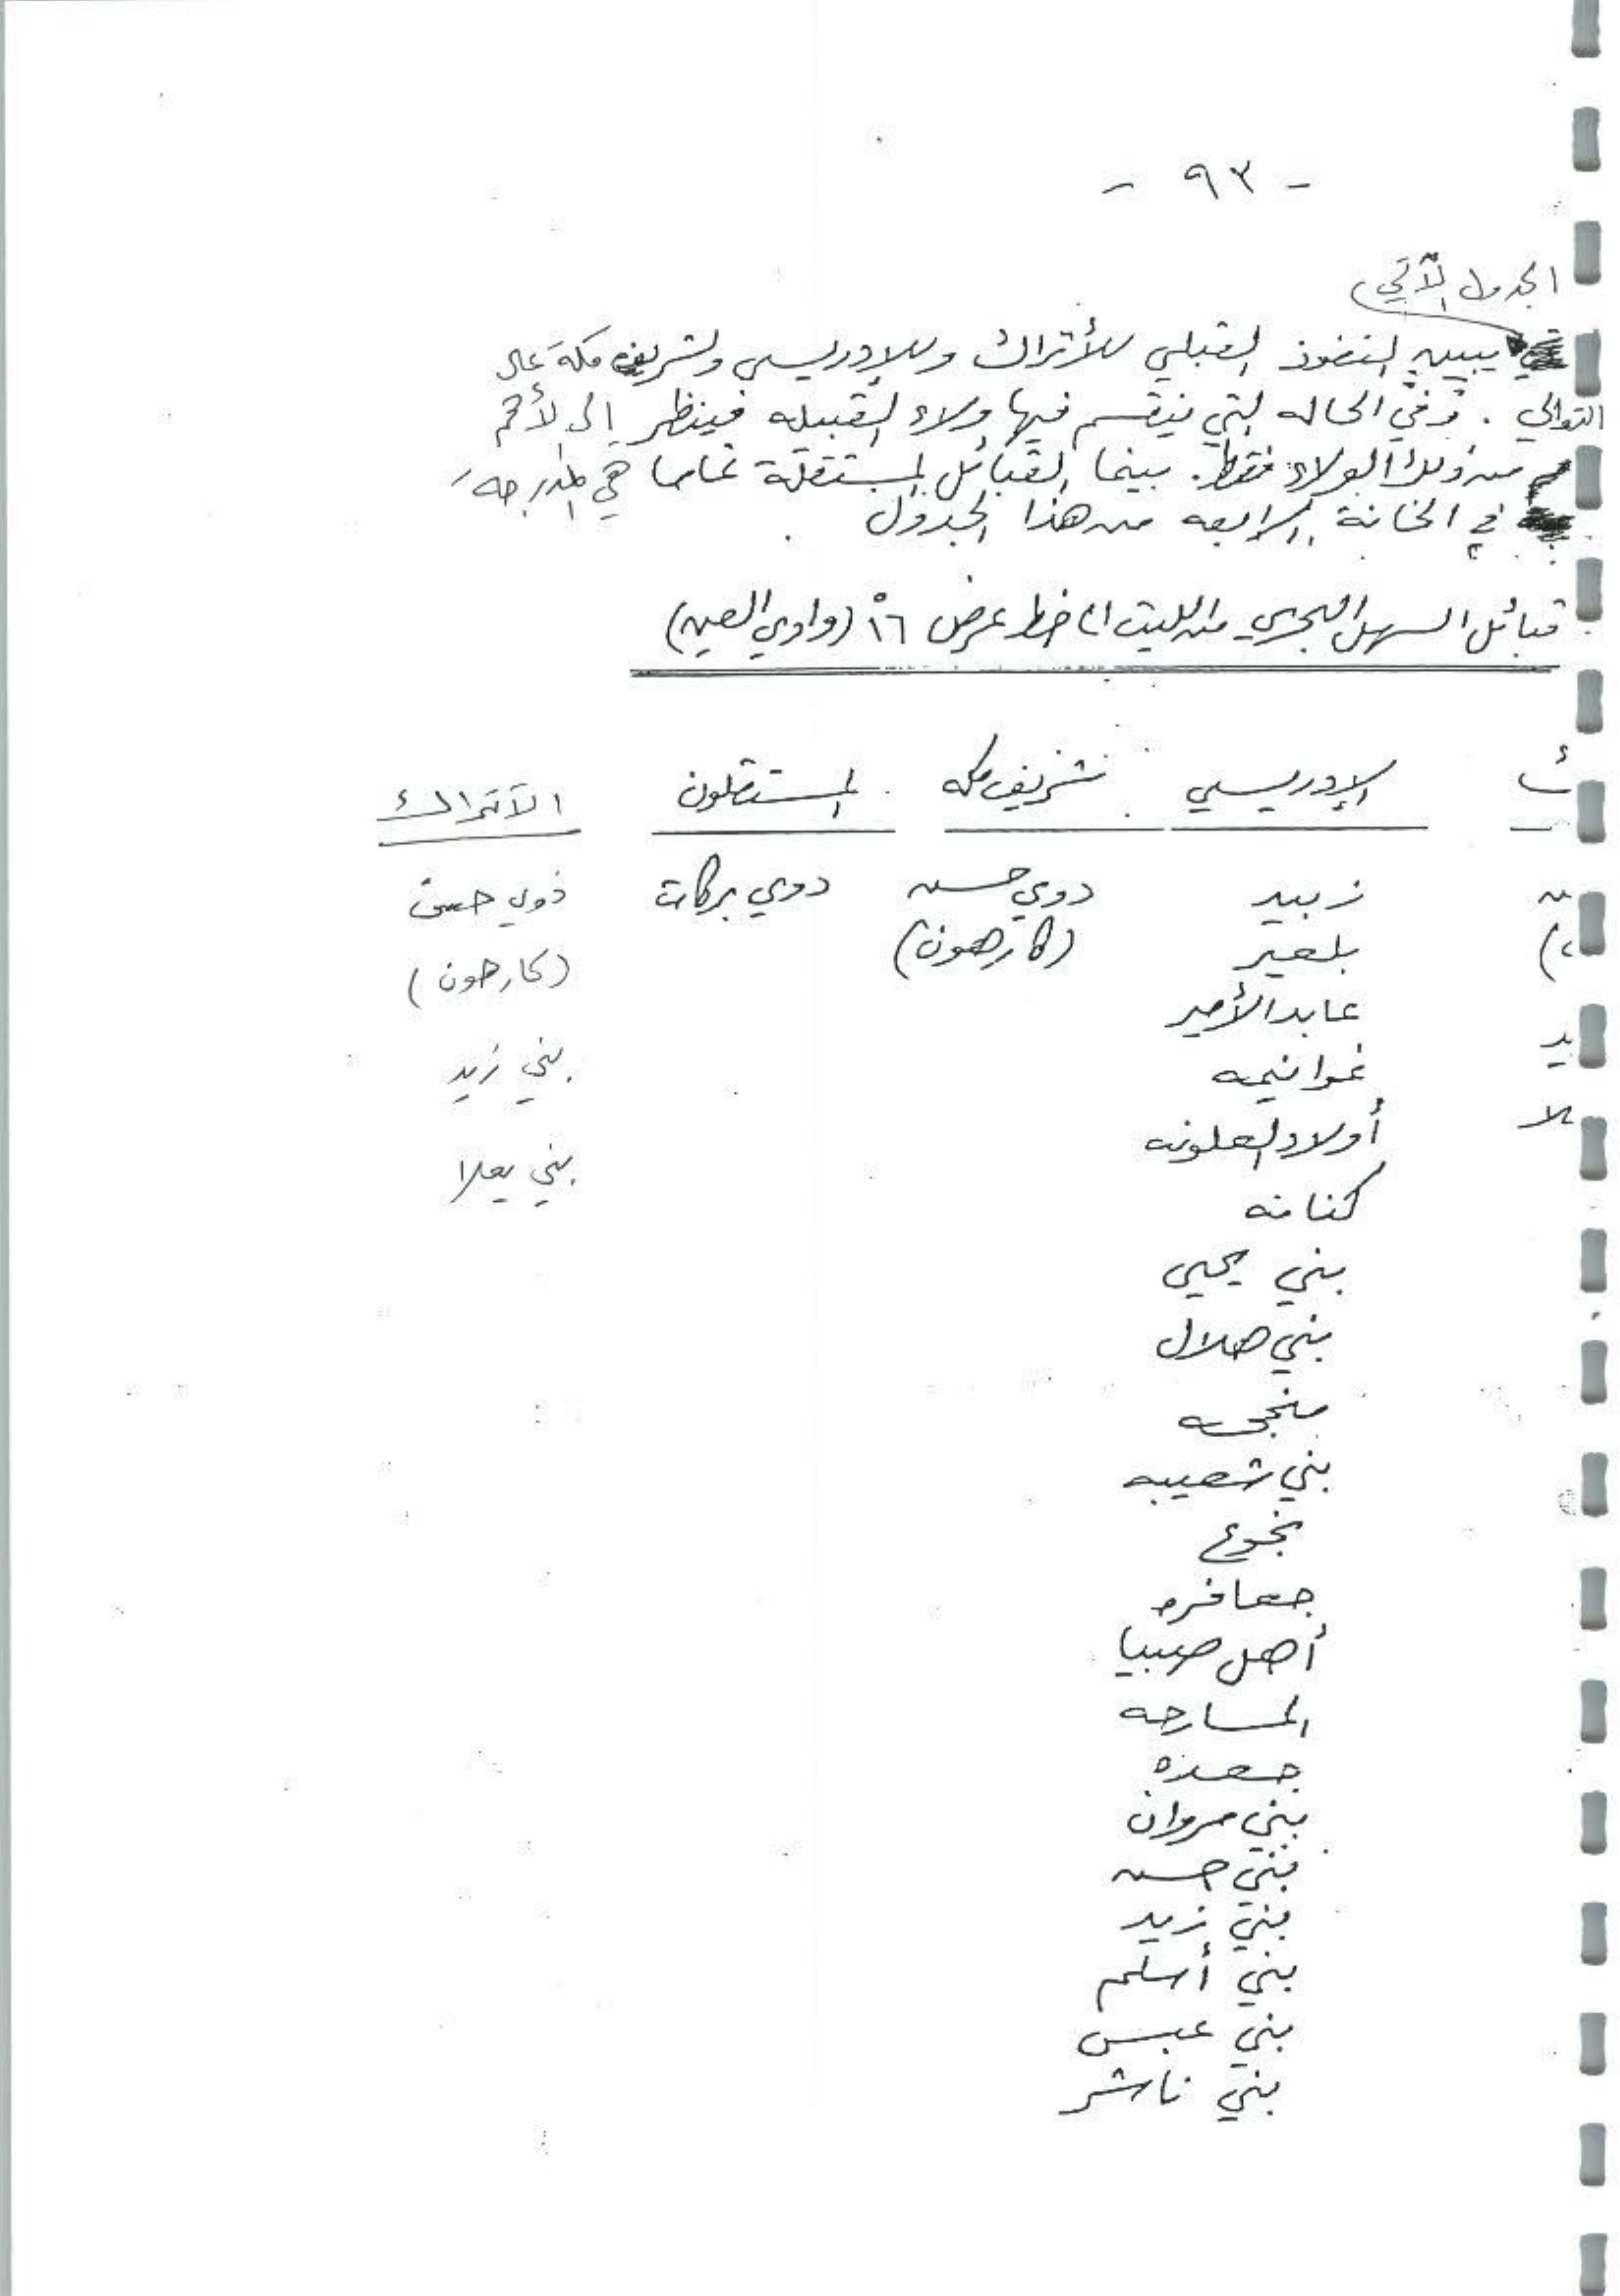 - ٩٣ -
الجدول الآتي
يبين النفوذ القبلي للأتراك وللإدريسي ولشريف مكة على
التوالي . وفي الحاله التي ينقسم فيها ولاء القبيله فينظر إلى الأهم
من ذلك الولاء فقط . بينما القبائل المستقلة تماما هي المدرجه
في الخانة الرابعه من هذا الجدول .
قبائل السهل البحري من الليث الى خط عرض ١٦ْ (وادي العين)
الإدريسي شريف مكه المستقلون الآتراك
زبيد دوي حسن دوي بركات ذوي حسن
بلعير (كارهون) (كارهون)
عابد الأمير
غوانيمه بني زيد
أولاد العلونه
بني يعلا
كنانه
بني يحيى
بني هلال
منجحه
بني شعيبه
نجوع
جعافره
أهل صبيا
المسارحه
جعده
بني مروان
بني حسن
بني زيد
بني أسلم
بني عبس
بني ناشر